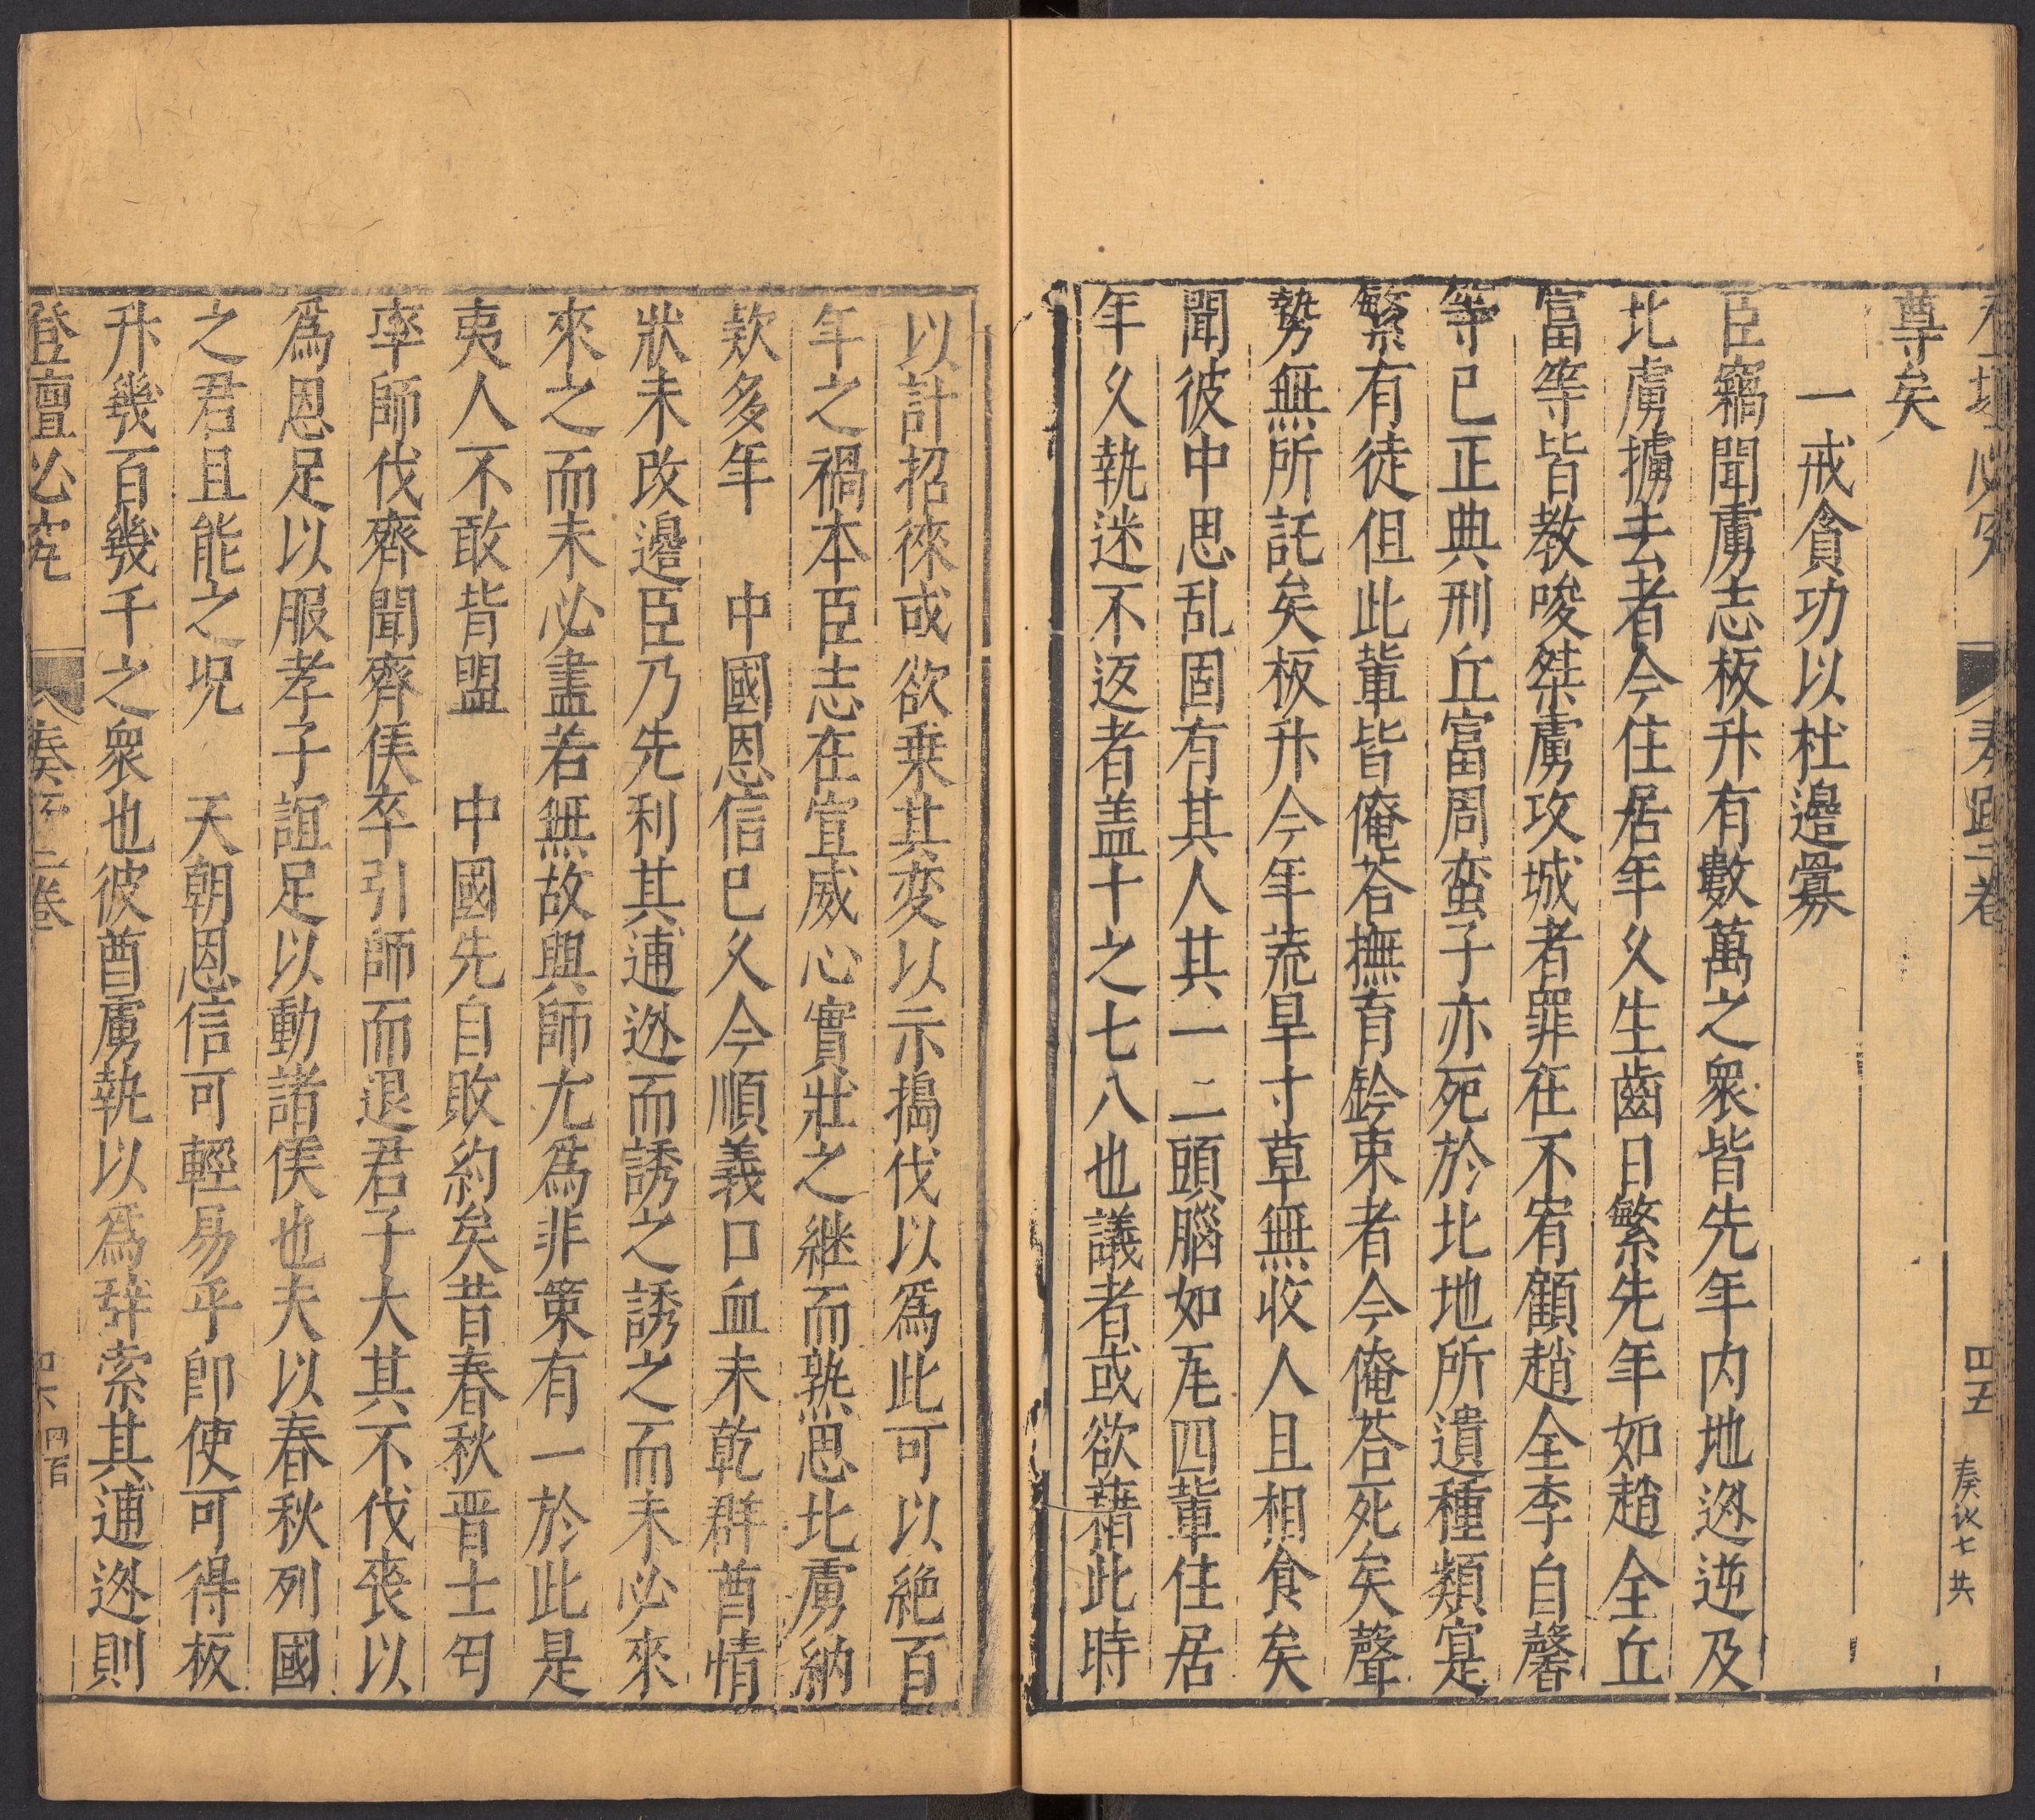 登壇必究 奏疏二卷 四五 奏议七共
尊矣
一戒貪功以杜邊釁
臣竊聞虜志板升有數萬之衆皆先年内地迯逆及
北虜擄去者今住居年久生齒日繁先年如趙全丘
富等皆教唆桀虜攻城者罪在不宥顧趙全李自馨
等已正典刑丘富周蛮子亦死於北地所遺種類寔
繁有徒但此輩皆俺荅撫育鈐束者今俺荅死矣聲
勢無所託矣板升今年荒旱寸草無收人且相食矣
聞彼中思乱固有其人其一二頭腦如㐌四輩住居
年久執迷不返者盖十之七八也議者或欲藉此時
以計招徠或欲乗其変以示搗伐以爲此可以絶百
年之禍本臣志在宣威心實壯之継而熟思北虜納
欵多年 中國恩信已久今順義口血未乾群酋情
狀未改邊臣乃先利其逋迯而誘之誘之而未必來
來之而未必盡若無故與師尤爲非策有一於此是
夷人不敢背盟 中國先自敗約矣昔春秋晋士匄
率師伐齊聞齊侯卒引師而退君子大其不伐丧以
爲恩足以服孝子誼足以動諸侯也夫以春秋列國
之君且能之况 天朝恩信可輕易乎即使可得板
升幾百幾千之衆也彼酋虜執以爲辞索其逋迯則
登壇必究 奏疏二卷 四六